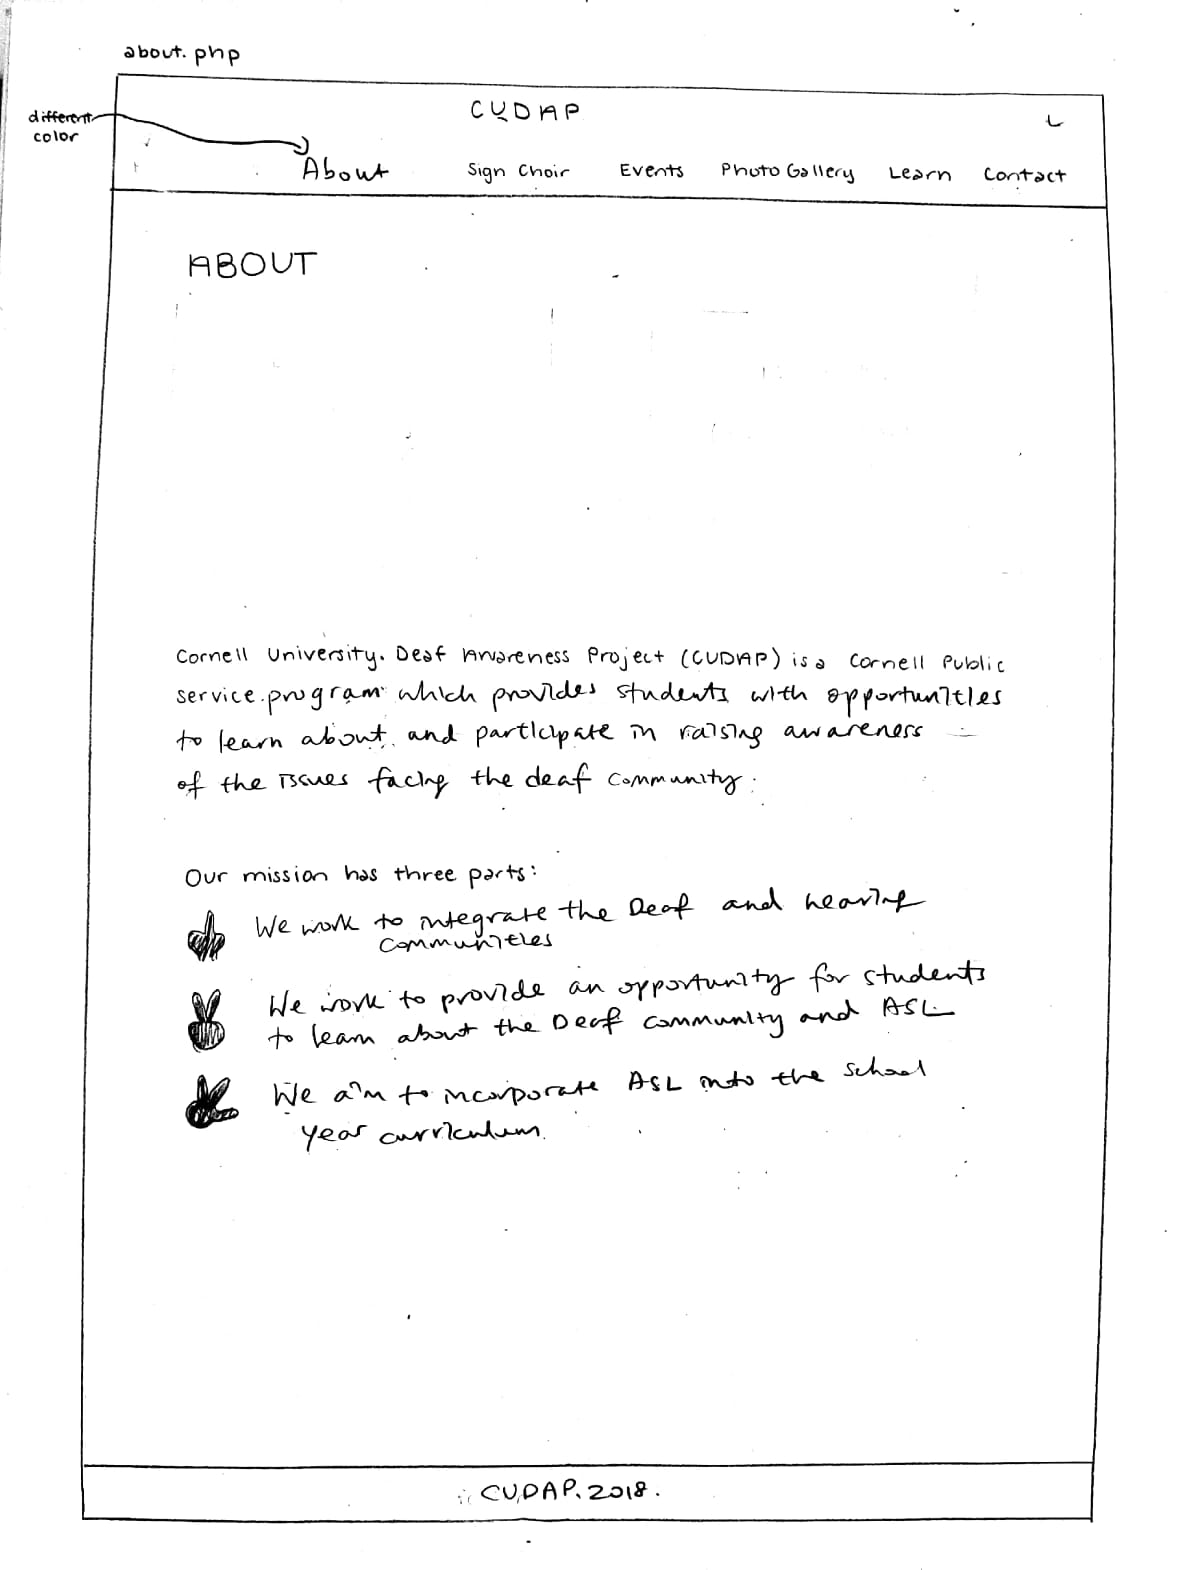 about.php
different
color
CUDAP
About Sign Choir Events Photo Gallery Learn Contact
ABOUT
Cornell University Deaf Awareness Project (CUDAP) is a Cornell Public
service program which provides students with opportunities
to learn about and participate in raising awareness
of the issues facing the deaf community.
Our mission has three parts:
We work to integrate the Deaf and hearing
communities
We work to provide an opportunity for students
to learn about the Deaf community and ASL
We aim to incorporate ASL into the school
year curriculum.
CUDAP. 2018.